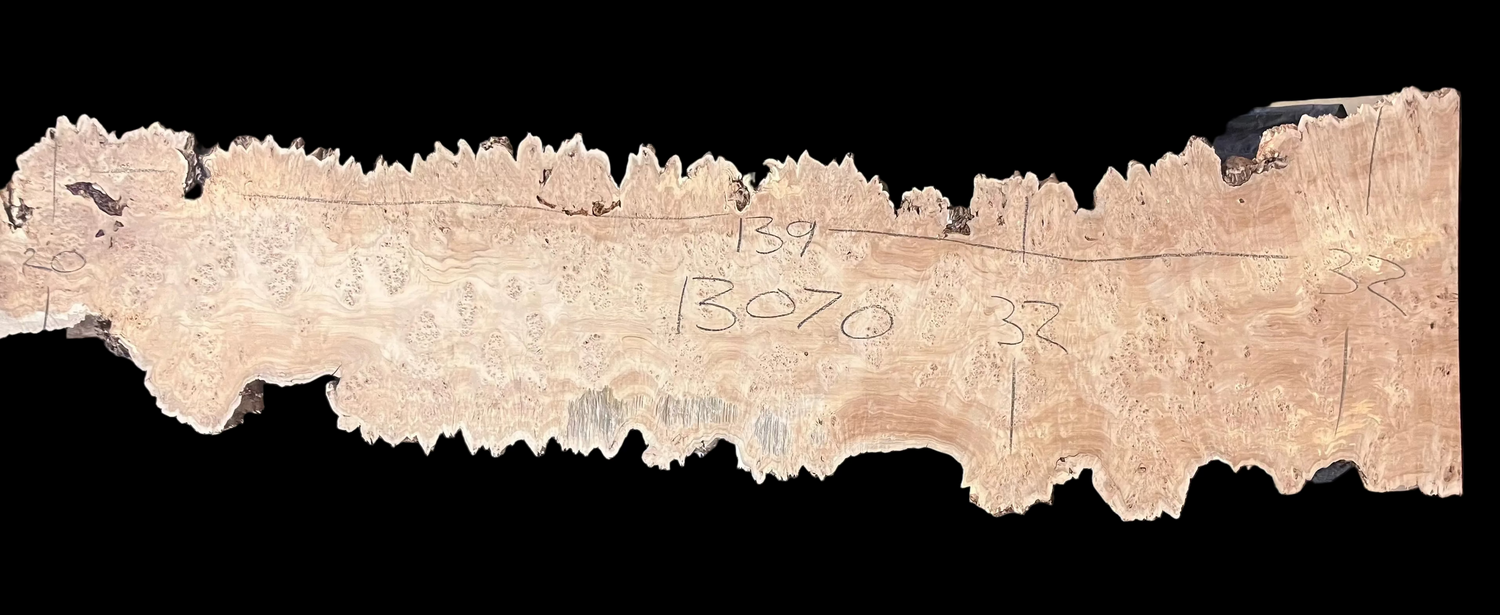 139
20
32
13070
32